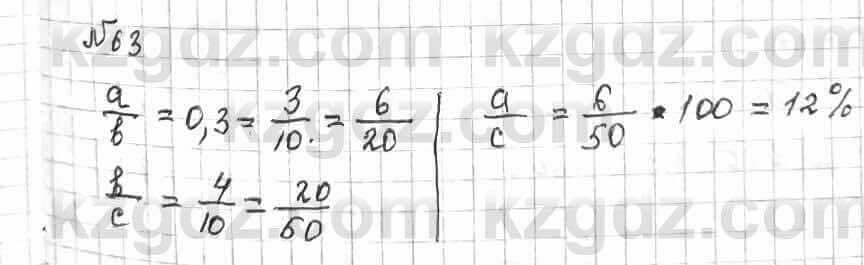 №63
a/b = 0,3 = 3/10 = 6/20
b/c = 4/10 = 20/50
a/c = 6/50 • 100 = 12%
kzgdz.com kzgdz.com
kzgdz.com kzgdz.com
kzgdz.com kzgdz.com